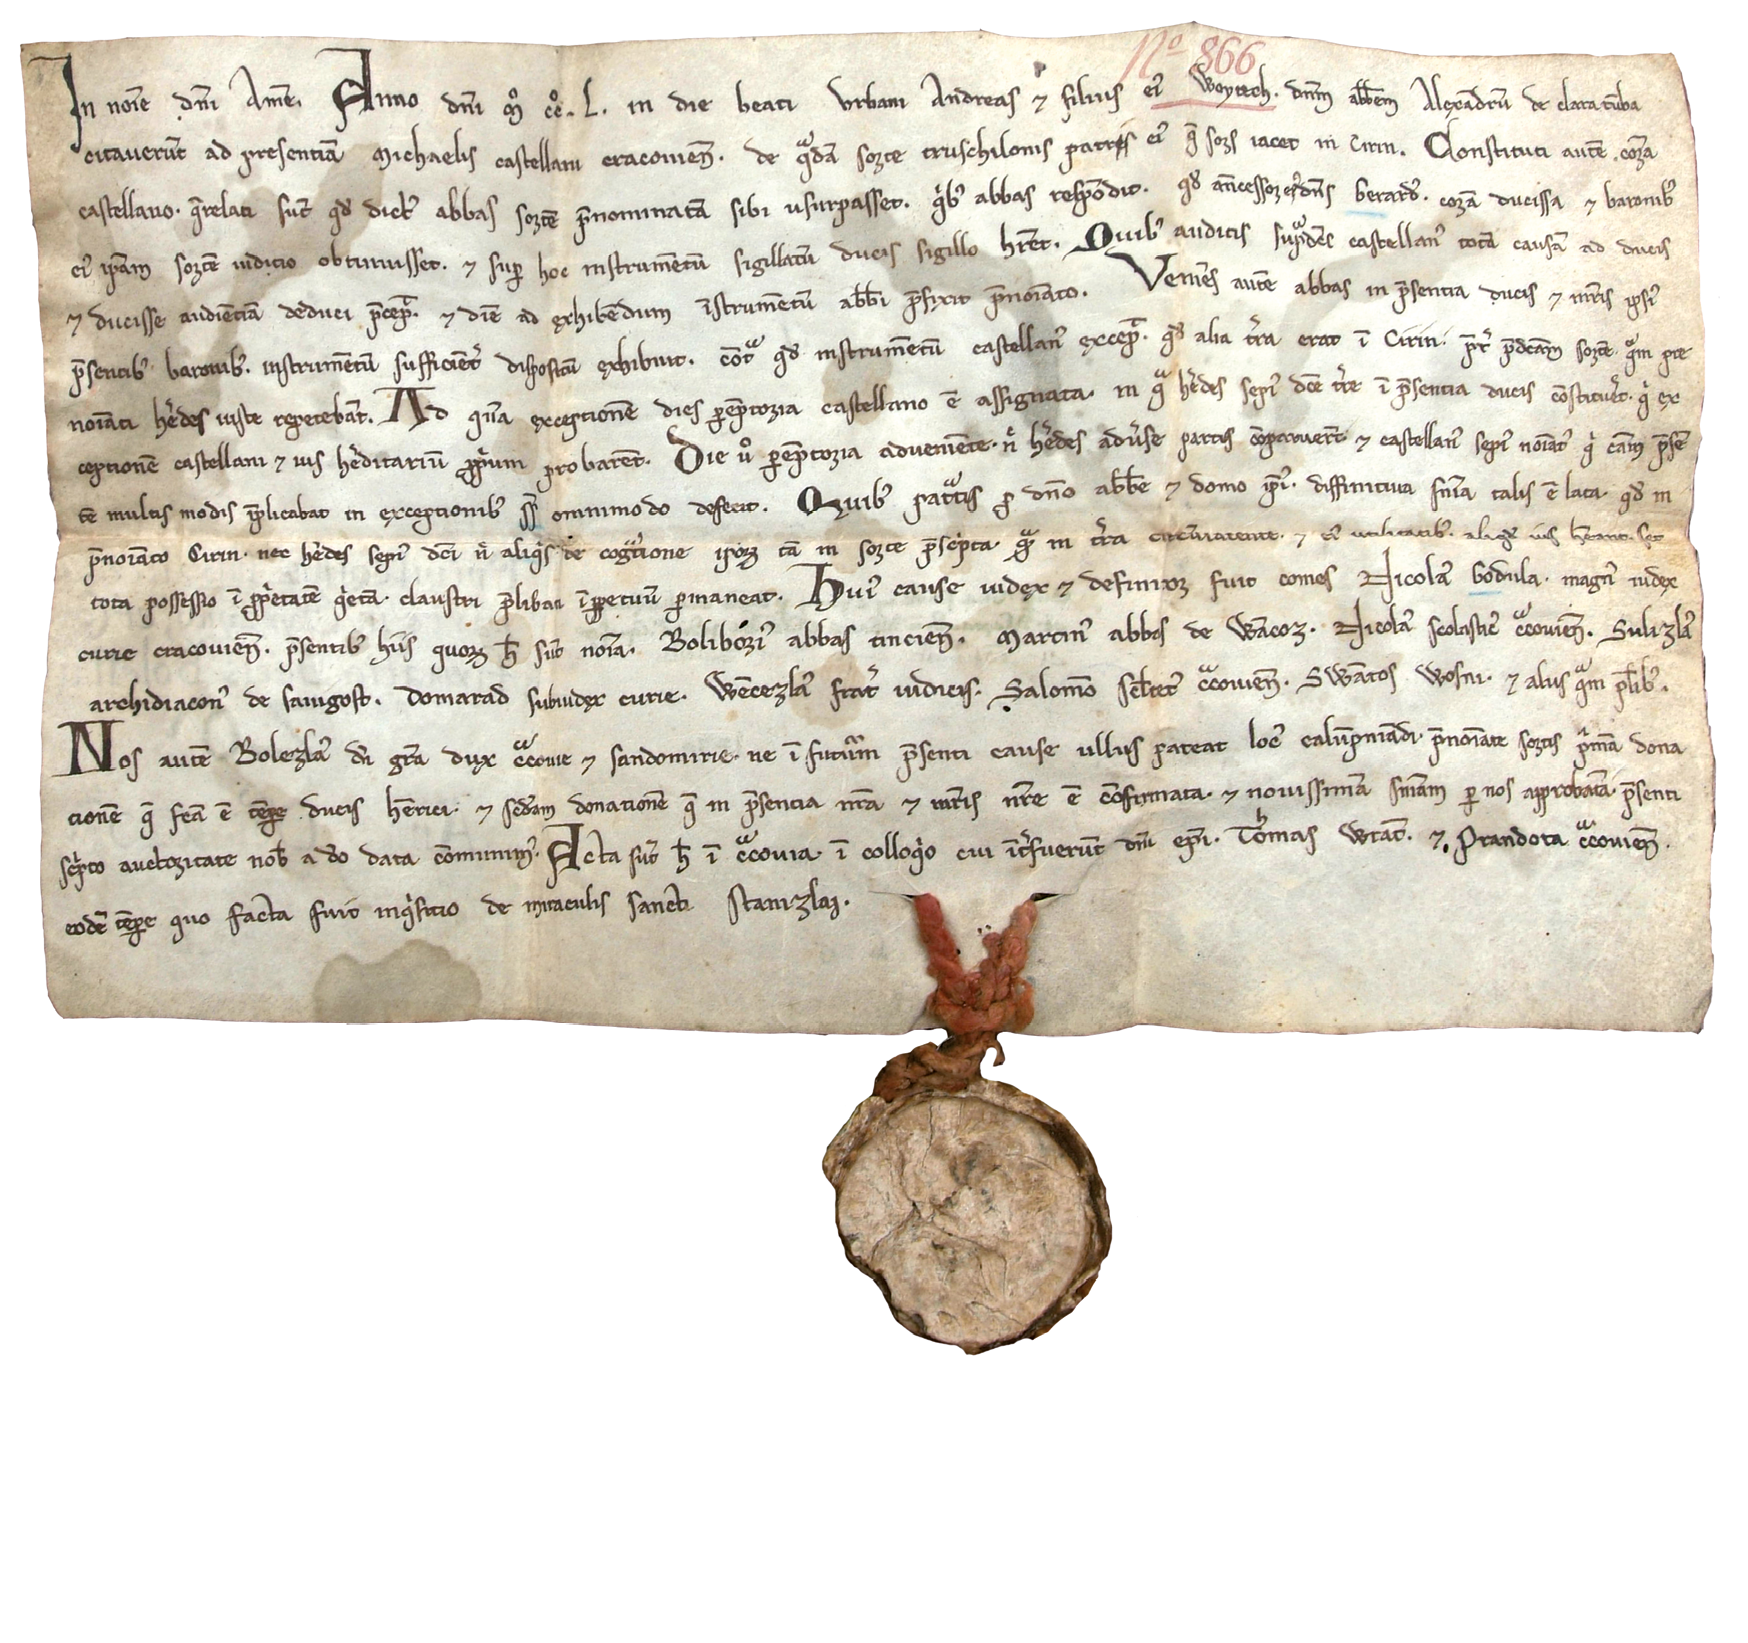 Nº 866
In noīe dn̄i Am̄e. Anno dn̄i mͦ ccͦ. L. in die beati Urbani Andreas ⁊ filius ei᷒ Woytech. dn̄m abb̄em Alexandrū de clara tūba
citaverūt ad presentiā Michaelis castellani cracovien̄. de q̄dā sorte truschilonis patris ei᷒ q̄ sors iacet in Cirin. Constituti autē corā
castellano. q̄relati sūt qd̄ dict᷒ abbas sortē p̄nominatā sibi usurpasset. qⁱb᷒ abbas respōdit. qd̄ an̄cessor ei᷒ dn̄s berard᷒. corā ducissa ⁊ baronib᷒
ei᷒ ip̄am sortē iudicio obtinuisset. ⁊ sup̱ hoc instrumētū sigillatū ducis sigillo hr̄et. Quib᷒ auditis sup̱dc̄s castellan᷒ totā causā ad ducis
⁊ ducisse audiētiā deduci p̄cep̄. ⁊ diē ad exhibēdum īstrumētū abb̄i p̄fixit p̄noīato. Veniēs autē abbas in p̄sentia ducis ⁊ mr̄is ipsi᷒
p̄sentib᷒ baronib᷒. instrumētū sufficiēt᷒ dispositū exhibuit. cōt̄ qd̄ instrumētū castellan᷒ excep̄. qd̄ alia t̄ra erat ī Cirin. p̄t᷒ p̄dc̄am sortē qᵃm pre
noīati h̄edes iuste repetebāt. Ad quā exceptionē dies p̱ēptoria castellano ē assignata. in qᵃ h̄edes sepi᷒ dc̄e t̄re ī p̄sentia ducis cōstituēt. qⁱ ex
ceptionē castellani ⁊ ius h̄editariū p̱prium probarēt. Die vͦ p̱ēptoria adveniēte. n̄ h̄edes adv̄se partis cōparuerūt ⁊ castellan᷒ sepi᷒ noīat᷒ qⁱ cām p̄sē
tē multis modis p̄plicabat in exceptionib᷒ s̄s̄ omnimodo defecit. Quib᷒ pat̄tis p̱ dn̄o abb̄e ⁊ domo ip̄i᷒. diffinitiva sn̄ia talis ē lata. qd̄ in
p̄noīato Cirin. nec h̄edes sepi᷒ dc̄i n̄ aliqⁱs de cogᵃtione ip̄oꝝ tā in sorte p̄sc̄pta qᵃ in t̄ra circūiacente. ⁊ ei᷒ utilitatib᷒. aliqd̄ ius h̄eant. set
tota possessio ī p̱p̄etatē q̄etā. claustri p̄libati īp̱petuū p̱maneat. Hui᷒ cause iudex ⁊ definitor fuit comes Nicola᷒ bodula. magn᷒ iudex
curie cracovien̄. p̄sentib᷒ hiis quoꝝ h̄ sūt noīa. Boliborzi᷒ abbas tincien̄. Martin᷒ abbas de Wācoz. Nicola᷒ scolastic᷒ cᵃcovien̄. Sulizla᷒
archidiacon᷒ de savigost. Domarad subiudex curie. Wēcezla᷒ frat᷒ iudicis. Salomō sc̄ltet᷒ cᵃcovien̄. Swātos Wosni. ⁊ aliis qᵃm pl̄ib᷒.
Nos autē Bolezla᷒ di̇̄ gr̄a dux cᵃcovie ⁊ sandomirie. ne ī futurūm p̄senti cause ullus pateat loc᷒ calūpniādi. p̄noīate sortis pⁱmā dona
cionē q̄ fc̄a ē tēp̱re ducis hērici. ⁊ sed̄am donationē q̄ in p̄sencia nr̄a ⁊ mr̄is nr̄e ē cōfirmata. ⁊ novissimā sn̄iam p̱ nos approbatā. p̄senti
sc̄pto auctoritate nob᷒ a dō data cōmunim᷒. Acta sūt h̄ ī cᵃcovia. ī colloqⁱo cui īt᷒fuerūt dn̄i ep̄i. Thomas Wrat̄. ⁊ Prandota cᵃcovien̄.
eodē tēp̱re quo facta fuit inqⁱsitio de miraculis sancti Stanizlai.